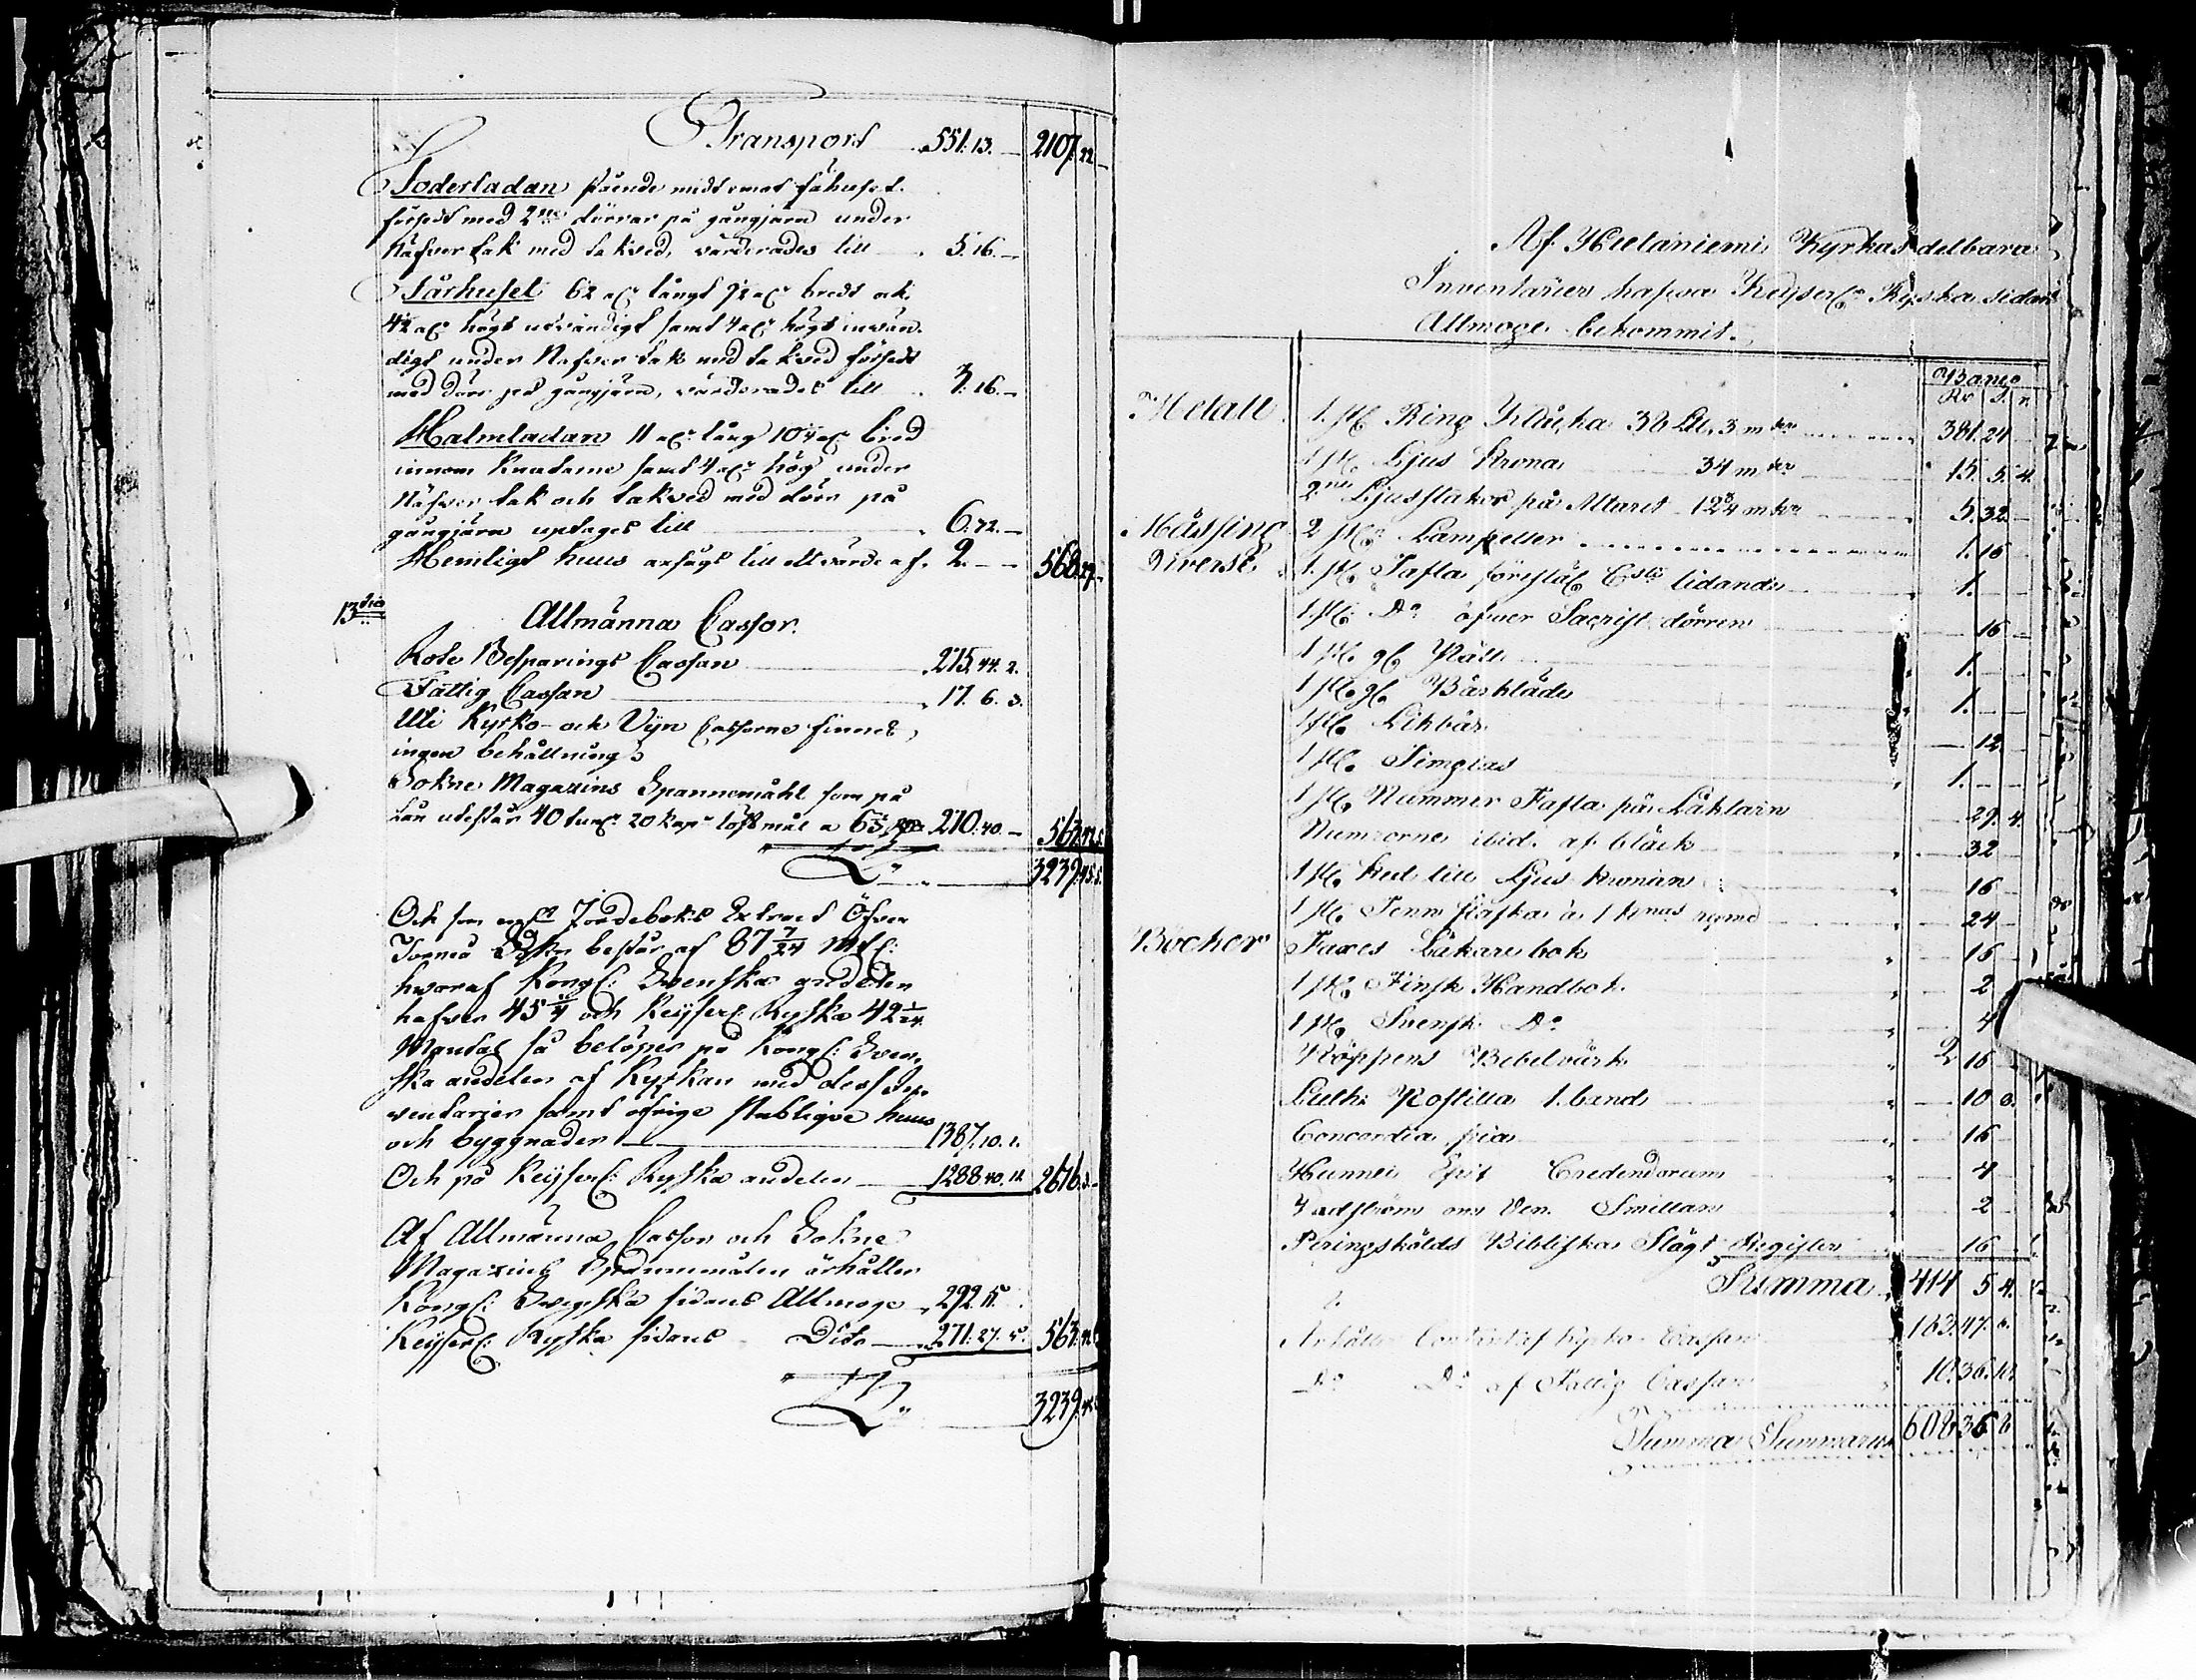 Transport 551.13. — 2107.22 —
Foderladan stående midt emot fähuset
försedt med 2ne dörrar på gångjärn under
Näfver tak med takved, värderades till 5.16. —
Fårhuset 6½ aln långt 7½ aln bredt och
4½ aln högt utvändigt samt 4 aln högt invän-
digt under Näfver tak med takved försedt
med dörr på gångjärn, värderades till 3.16. —
Halmladan 11 aln lång 10¼ aln bred
innom knutarne samt 4 aln hög under
Näfver tak och takved med dörr på
gångjärn uptages till 6.72. —
Hemligt huus ansågs till ett värde af 2. — — 568.27. —
13dio
Allmänna Cassor.
Rote Besparings Cassan 275.44.2.
Fattig Cassan 17.6.3.
Uti Kyrko- och Vijn Cassorne finnes
ingen behållning
Sokne Magazins Spannemåhl som på
lån utestår 40 tunr 20 kapr 270.40. — 563.42.5.
Sa 3239.45.5.
Och som Jordeboks Extract Öfver
Torneå Sokn består af 87 7/24 Mtl:
hvaraf Kongl: Svenska andelen
hafver 45¼ och Keijserl: Ryska 42 1/24
Mantal så belöpes på Kongl: Sven-
ska andelen af Kyrkan med dess In-
ventarier samt öfrige Publique huus
och byggnader 1387.10.1.
Och på Keijserl: Ryska andelen 1288.40.11. 2676.3.
Af Allmänna Cassor och Sokne
Magazins Spannemålen erhåller
Kongl: Svenska sidans Allmoge 292.15.
Keijserl: Ryska sidans Dito 271.27.5. 563.42.5
Sa 3239.45.
Af Hietaniemi Kyrkas delbara
Inventarier hafva Keijserl. Ryska sidans
Allmoge bekommit.
Banco
Rd s. r.
Metall 1. st. Ring Klåcka 38 Lt. 3 mkr 381.24
1 st. Ljus Krona 34 mkr 15. 5. 4.
2ne Ljusstakor på Altaret 12¾ mkr 5.32
Mässing 2 st. Lampetter 1.16
Diverse 1. st. Tafla föreställ. Csti lidande 1.
1. st. Do öfver Sacrist. dörren 16
1 st. gl. Plått 1.
1 st. gl. Bårkläde 1.
1 st. Likbår 12
1 st. Timglas 1.
1 st. Nummer Tafla på Läktarn 29. 4.
Numrorne ibid. af bläck 32
1 st. Ked till Ljus Kronan 16
1 st. Tenn flaska à 1 Kanas rymd 24
Böcker Faxes Läkare bok 16
1 st. Finsk Handbok 2
1 st. Svensk Do 4
Köppens Bibelvärk 2 16
Luth: Postilla 1. band 10 8.
Concordia pia 16
Hunnii Epit Credendorum 4
om Ven. Smittan 2
Peringskölds Bibliska Slägt Register 16
Summa 414 5 4.
Erhåller Contant af Kyrko Cassan 183.47.6.
Do Do af Fattig Cassan 10.36.10
Summa Summarum 608.36.8